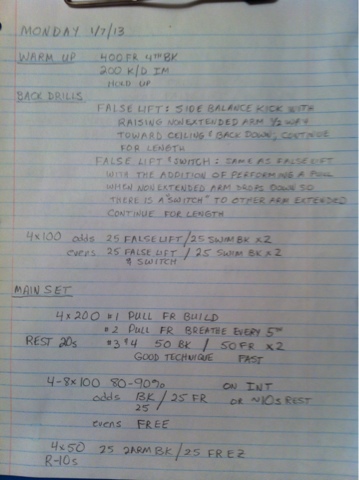 MONDAY 1/7/13
WARM UP 400 FR 4TH BK
200 K/D IM
HOLD UP
BACK DRILLS
FALSE LIFT: SIDE BALANCE KICK WITH
RAISING NONEXTENDED ARM 1/2 WAY
TOWARD CEILING & BACK DOWN, CONTINUE
FOR LENGTH
FALSE LIFT & SWITCH: SAME AS FALSE LIFT
WITH THE ADDITION OF PERFORMING A PULL
WHEN NONEXTENDED ARM DROPS DOWN SO
THERE IS A "SWITCH" TO OTHER ARM EXTENDED
CONTINUE FOR LENGTH
4x100 odds 25 FALSE LIFT / 25 SWIM BK x2
evens 25 FALSE LIFT / 25 SWIM BK x2
& SWITCH
MAIN SET
4x200 #1 PULL FR BUILD
#2 PULL FR BREATHE EVERY 5TH
REST 20s #3&4 50 BK / 50 FR x2
GOOD TECHNIQUE FAST
4-8x100 80-90% ON INT
odds BK / 25 FR OR ~10s REST
25
evens FREE
4x50 25 2ARM BK / 25 FR EZ
R-10s